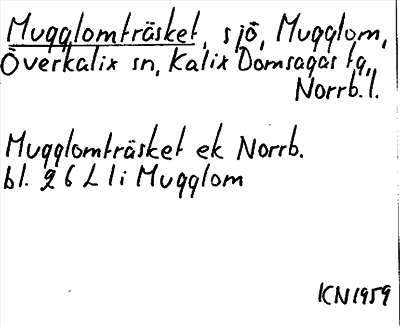 Mugglomträsket, sjö, Mugglom,
Överkalix sn, Kalix Domsagas tg,
Norrb. l.
Mugglomträsket ek Norrb.
bl. 26 L li Mugglom
KN1959